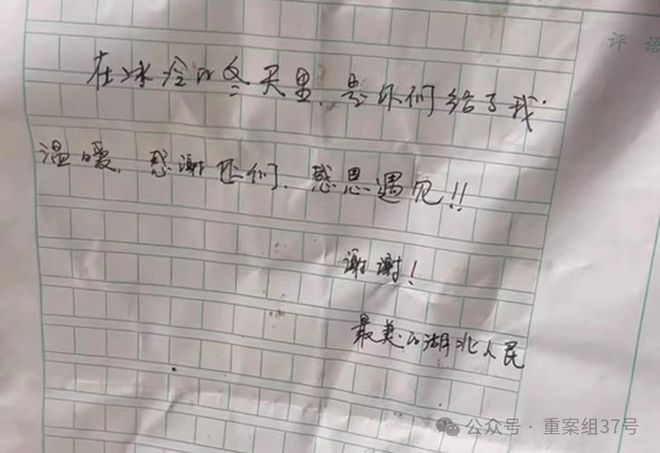 评语
在冰冷的冬天里，是你们给了我
温暖，感谢你们，感恩遇见!!
谢谢!
最美的湖北人民
公众号·重案组37号